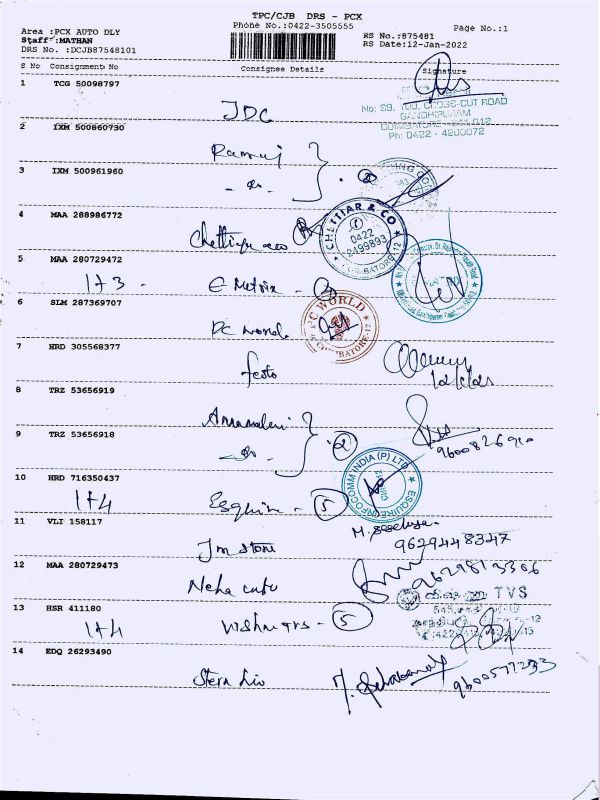 TPC/CJB DRS - PCX
Phone No.:0422-3505555
Page No.:1
Area :PCX AUTO DLY
Staff :NATHAN
DRS No. :DCJB87548101
RS No.:875481
RS Date:12-Jan-2022
S No Consignment No Consignee Details Signature
1 TCG 50098797
JDC
No: 89, 100, CROSS-CUT ROAD
GANDHIPURAM
COIMBATORE - 641 012
Ph: 0422 - 4200072
2 IXM 500860730
Ramraj
3 IXM 500961960
- do - 2
4 MAA 288986772
Chettiar &co
CHETTIAR & CO
0422
2499893
COIMBATORE-12
5 MAA 280729472
1+3 - E Metrix -
6 SLM 287369707
PC World
PC WORLD
COIMBATORE-12
7 HRD 305568377
festo
8 TRZ 53656919
Annamalai
9 TRZ 53656918
- do - 2
10 HRD 716350437
1+4 Esquire - 5
ESQUIRE INFOCOMM INDIA (P) LTD
11 VLI 158117
Jm store
9629448347
12 MAA 280729473
Neha
9629813306
TVS
13 HSR 411180
1+4 Vishnu TVS - 5
14 EDQ 26293490
9600577233